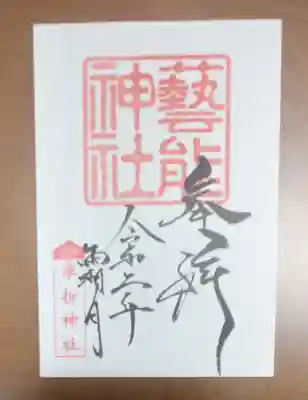 藝能
神社
奉拝
令和 年
霜月
車折神社